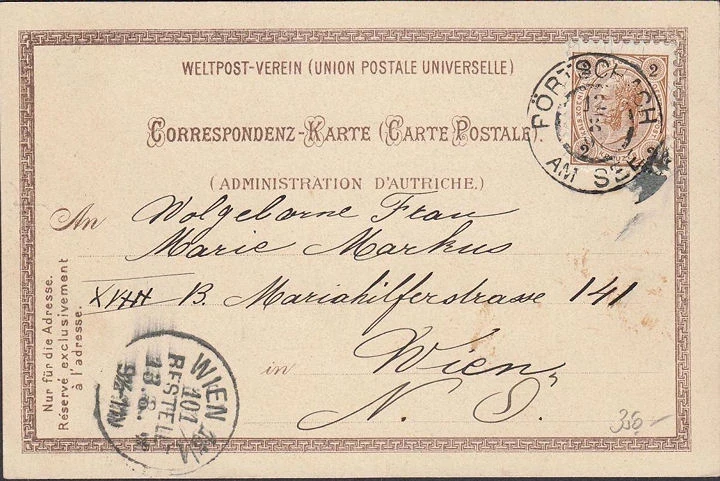 WELTPOST-VEREIN (UNION POSTALE UNIVERSELLE)
CORRESPONDENZ-KARTE (CARTE POSTALE).
(ADMINISTRATION D'AUTRICHE.)
2 2
2
PÖRTSCHACH
AM SEE
An Wolgeborne Frau
Marie Markus
B. Mariahilferstrasse 141
in Wien,
N. Ö.
Nur für die Adresse.
Réservé exclusivement
à l'adresse.
WIEN
101
BESTELLT
13. 8.
350.-